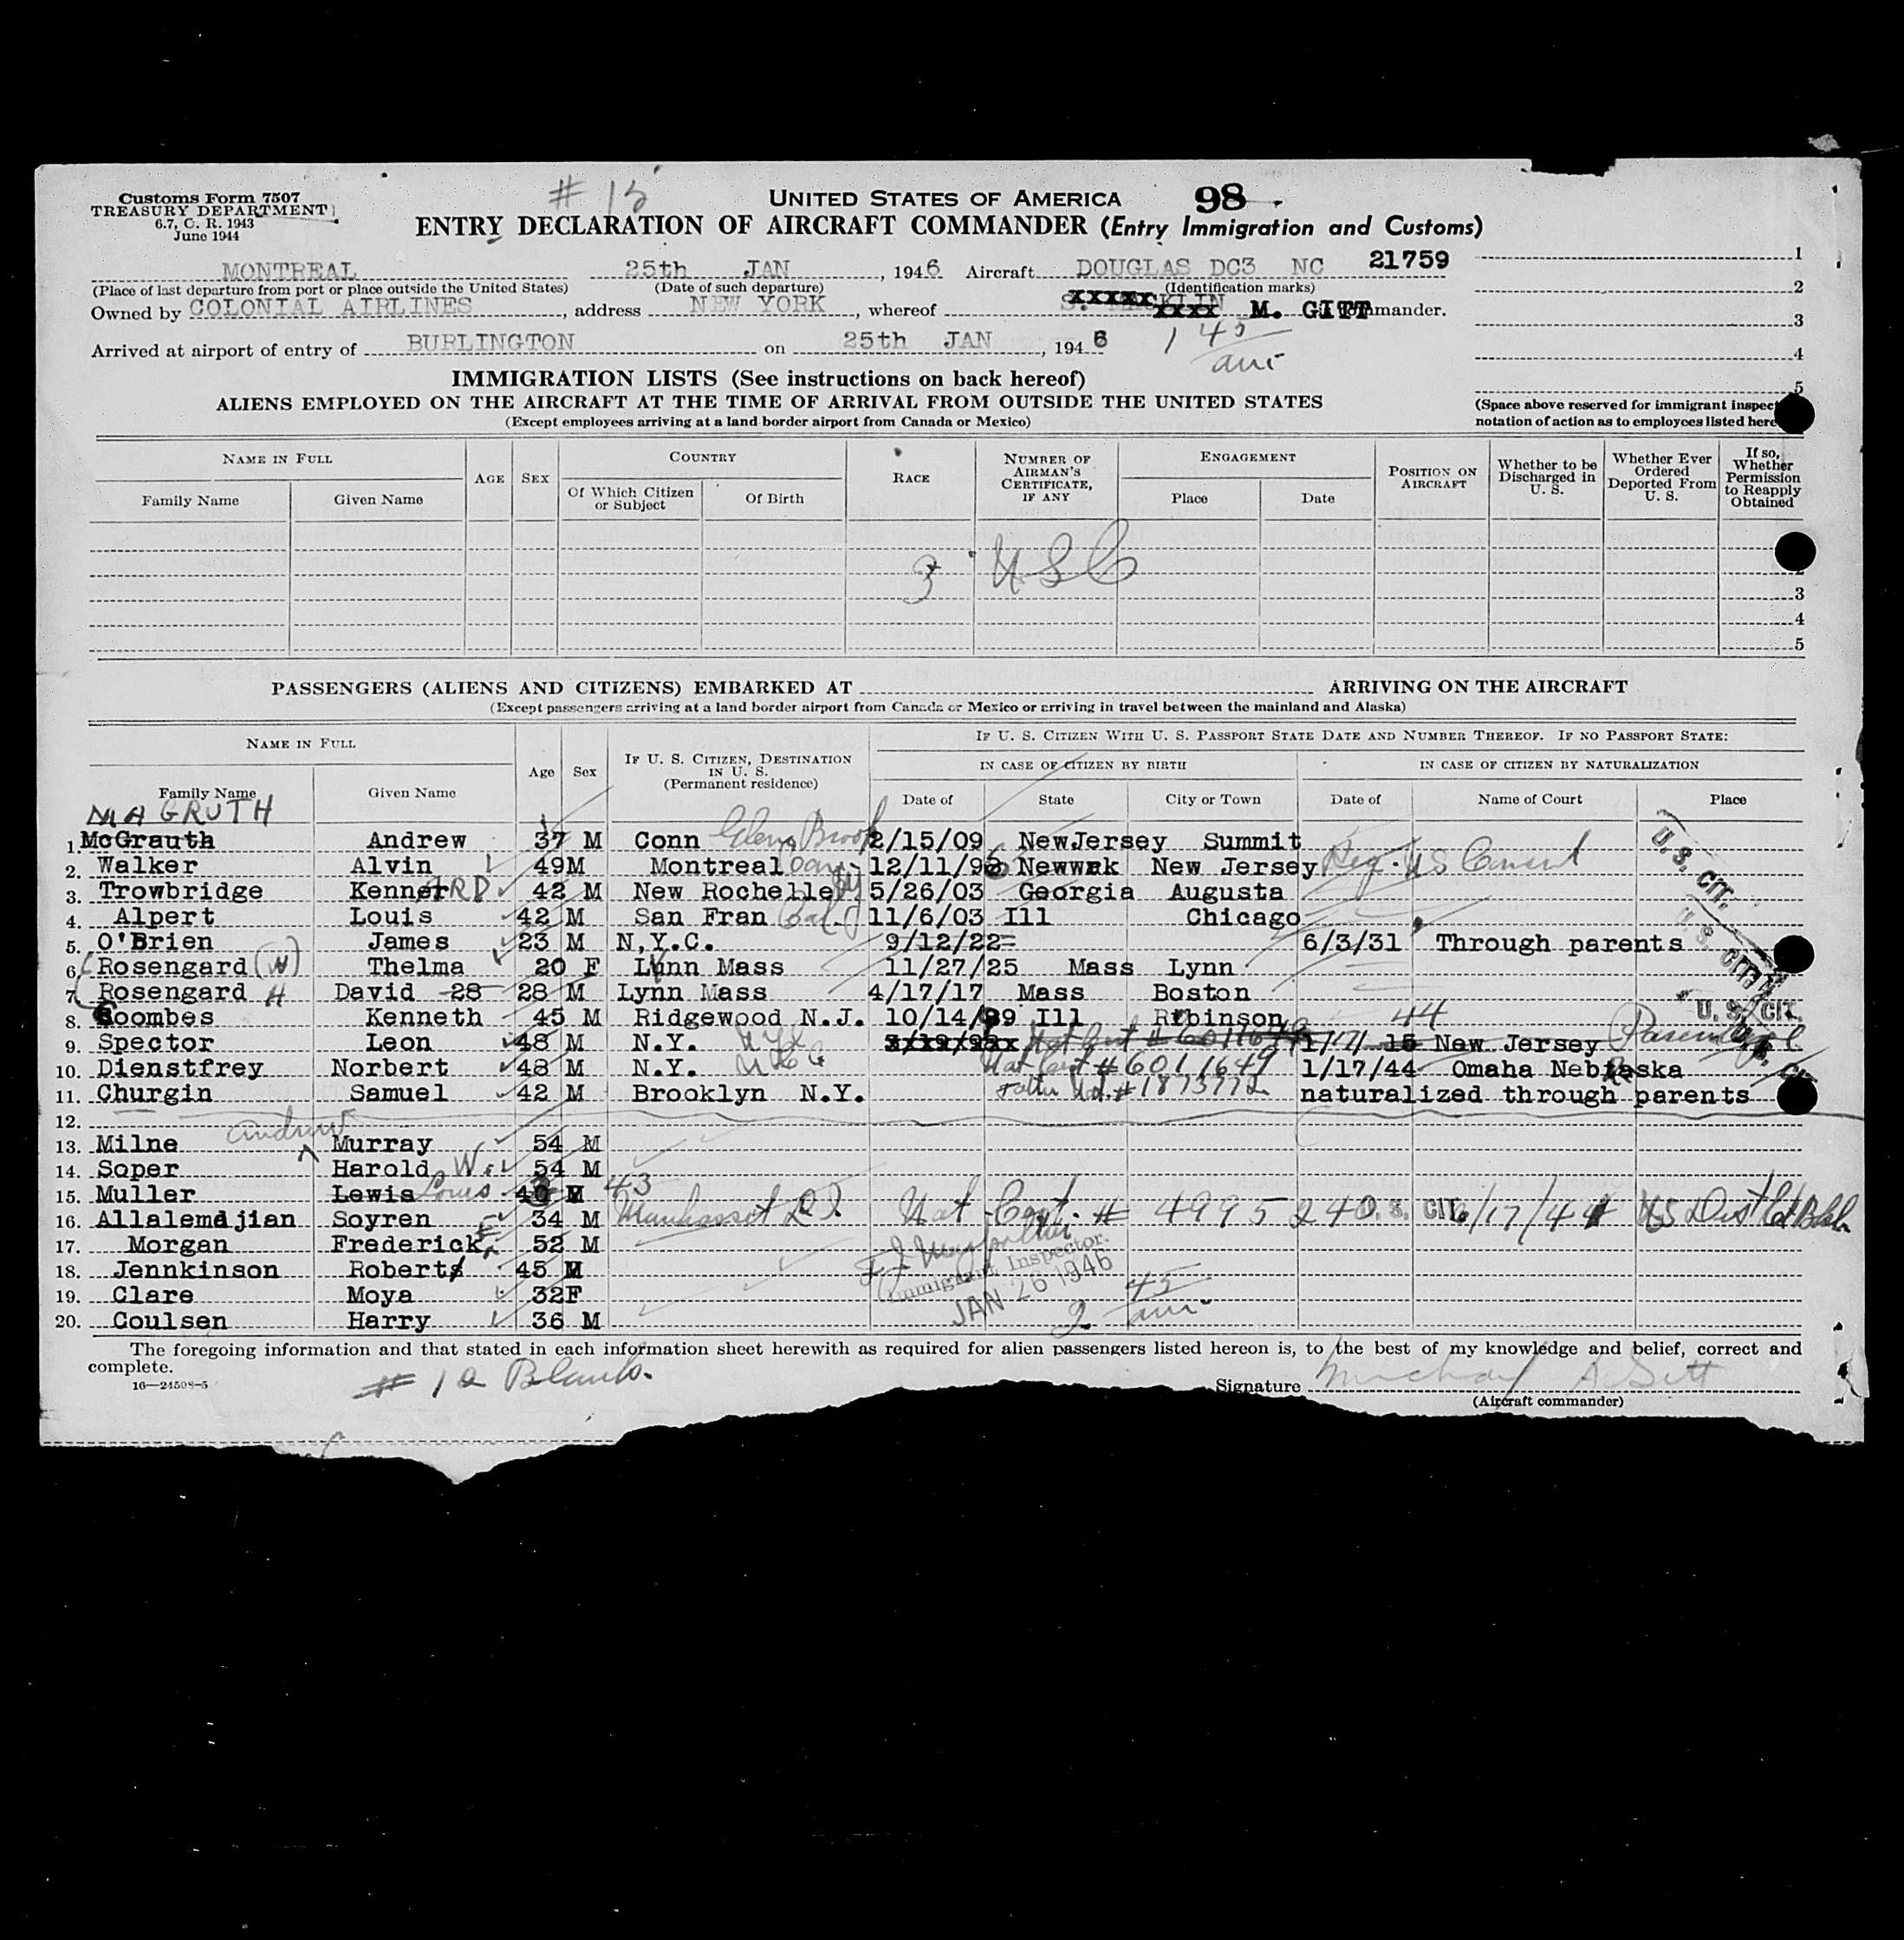 Customs Form 7507
TREASURY DEPARTMENT
6.7, C. R. 1943
June 1944
# 15
UNITED STATES OF AMERICA 98
ENTRY DECLARATION OF AIRCRAFT COMMANDER (Entry Immigration and Customs)
MONTREAL 25th JAN , 1946 Aircraft DOUGLAS DC3 NC 21759
(Place of last departure from port or place outside the United States) (Date of such departure) (Identification marks)
Owned by COLONIAL AIRLINES , address NEW YORK , whereof S. MACKLIN M. GITT Commander.
Arrived at airport of entry of BURLINGTON on 25th JAN , 1946 1 45 am
1
2
3
4
5
IMMIGRATION LISTS (See instructions on back hereof)
ALIENS EMPLOYED ON THE AIRCRAFT AT THE TIME OF ARRIVAL FROM OUTSIDE THE UNITED STATES
(Except employees arriving at a land border airport from Canada or Mexico)
(Space above reserved for immigrant inspec
notation of action as to employees listed here
NAME IN FULL AGE SEX COUNTRY RACE NUMBER OF AIRMAN'S CERTIFICATE, IF ANY ENGAGEMENT POSITION ON AIRCRAFT Whether to be Discharged in U. S. Whether Ever Ordered Deported From U. S. If so, Whether Permission to Reapply Obtained
Family Name Given Name Of Which Citizen or Subject Of Birth Place Date
3 USC
3
4
5
PASSENGERS (ALIENS AND CITIZENS) EMBARKED AT ARRIVING ON THE AIRCRAFT
(Except passengers arriving at a land border airport from Canada or Mexico or arriving in travel between the mainland and Alaska)
NAME IN FULL Age Sex IF U. S. CITIZEN, DESTINATION IN U. S. (Permanent residence) IF U. S. CITIZEN WITH U. S. PASSPORT STATE DATE AND NUMBER THEREOF. IF NO PASSPORT STATE:
IN CASE OF CITIZEN BY BIRTH IN CASE OF CITIZEN BY NATURALIZATION
Family Name Given Name Date of State City or Town Date of Name of Court Place
MAGRUTH
1. McGrauth Andrew 37 M Conn Glenn Brook 2/15/09 NewJersey Summit
2. Walker Alvin 49M Montreal Can 12/11/96 Newwrk New Jersey Reg. US Consul
3. Trowbridge KennerARD 42 M New Rochelle NY 5/26/03 Georgia Augusta
4. Alpert Louis 42 M San Fran Cal 11/6/03 Ill Chicago
5. O'Brien James 23 M N.Y.C. 9/12/22 6/3/31 Through parents
6. Rosengard (W) Thelma 20 F Lynn Mass 11/27/25 Mass Lynn
7. Rosengard H David 28 28 M Lynn Mass 4/17/17 Mass Boston
8. Coombes Kenneth 45 M Ridgewood N.J. 10/14/99 Ill Robinson 44 U. S. CIT.
9. Spector Leon 48 M N.Y. NYC Nat Cert # 6011649 1/7/15 New Jersey
10. Dienstfrey Norbert 48 M N.Y. NYC Nat Cert # 6011649 1/17/44 Omaha Nebraska
11. Churgin Samuel 42 M Brooklyn N.Y. Father Nat. # 1873772 naturalized through parents
U. S. CIT.
U. S. CIT.
12.
13. Milne Andrew Murray 54 M
14. Soper Harold W. 54 M
15. Muller Lewis Louis 43 M 43
16. Allalemdjian Soyren 34 M Manhasset L I. Nat Cert. # 4995240 U. S. CIT. 6/17/41 US Dist Ct Bkln
17. Morgan Frederick 52 M
18. Jennkinson Roberts 45 M
19. Clare Moya 32F
20. Coulsen Harry 36 M
Immigrant Inspector.
JAN 26 1946
2 45 am
The foregoing information and that stated in each information sheet herewith as required for alien passengers listed hereon is, to the best of my knowledge and belief, correct and
complete.
16—24598-5
# 12 Blank.
Signature Michael A Gitt
(Aircraft commander)